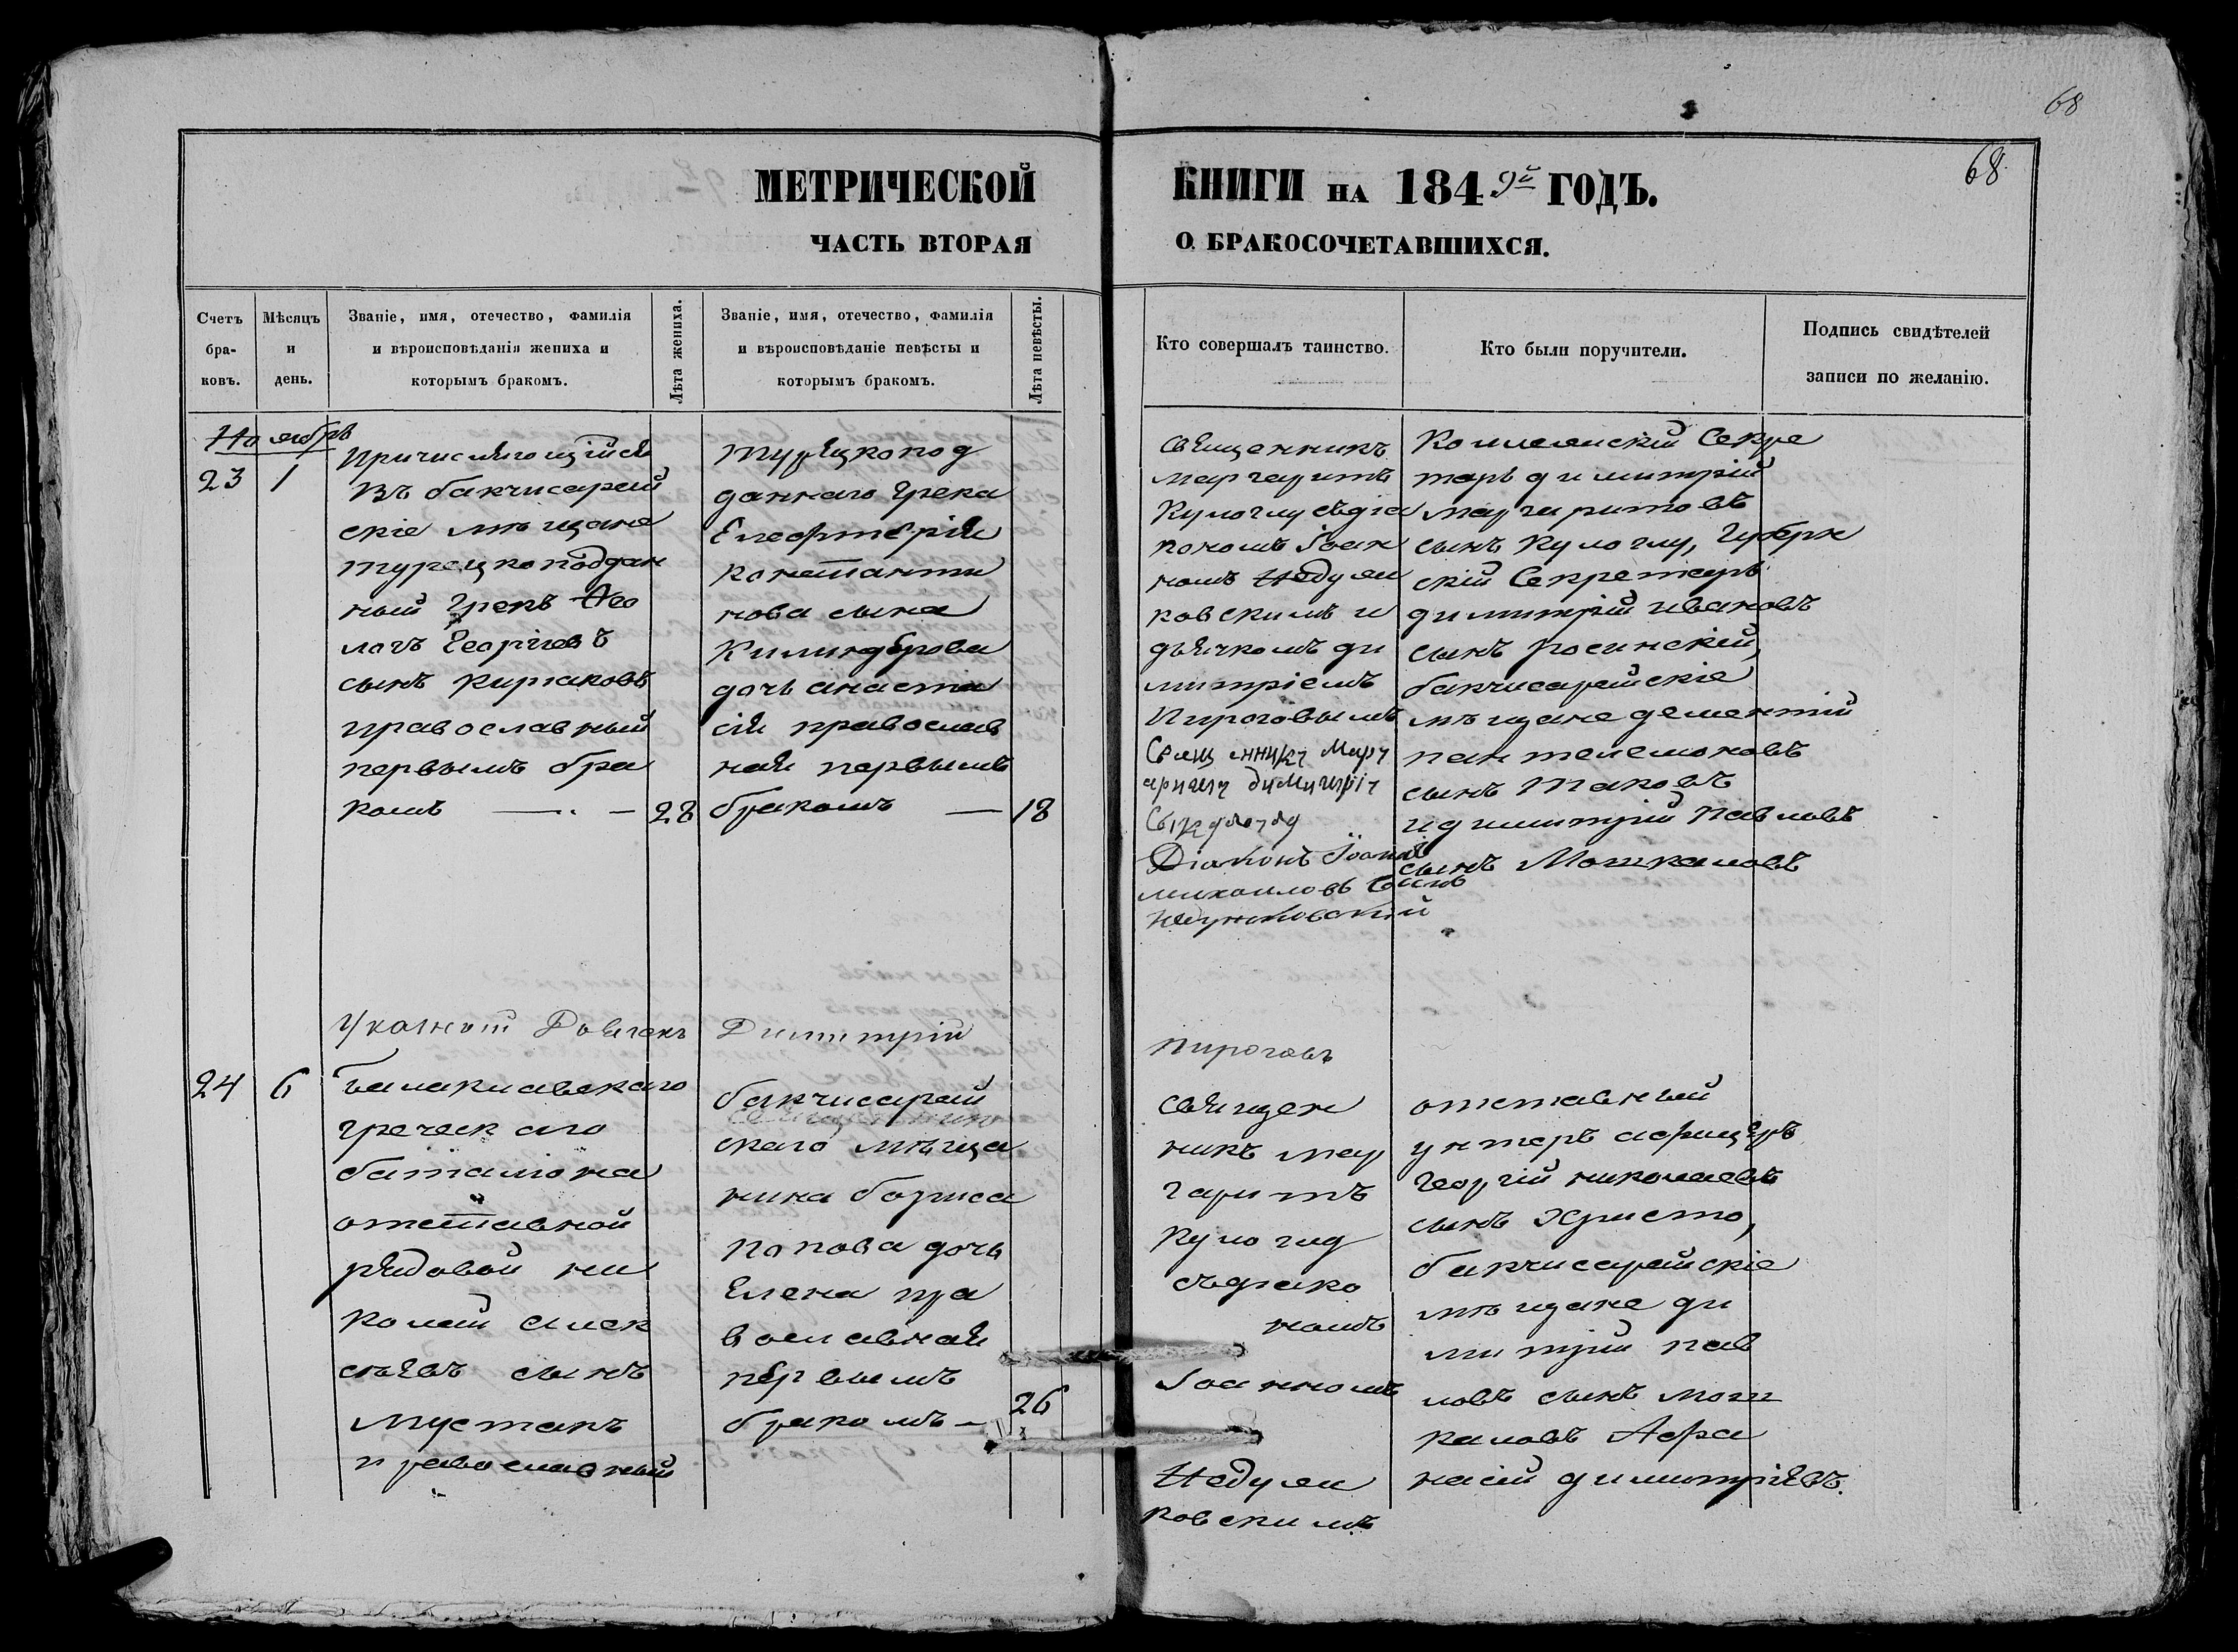 68
68
МЕТРИЧЕСКОЙ КНИГИ НА 1849й ГОДЪ.
ЧАСТЬ ВТОРАЯ О БРАКОСОЧЕТАВШИХСЯ.
Счетъ бра-ковъ.
Мѣсяцъ и день.
Званіе, имя, отечество, фамилія
и вѣроисповѣданія жениха и
которымъ бракомъ.
Лѣта жениха.
Званіе, имя, отечество, фамилія
и вѣроисповѣданіе невѣсты и
которымъ бракомъ.
Лѣта невѣсты.
Кто совершалъ таинство.
Кто были поручители.
Подпись свидѣтелей
записи по желанію.
Ноябрь
23 1
Причисляющійся
въ бакчисарай
скіе мѣщане
турецкоподдан
ный Грекъ
Георгіевъ
сынъ Киріаковъ
православный
первымъ бра
комъ — 28
турецкопод
даннаго Грека
Елефтерія
константи
нова сына
дочь анаста
сія православ
ная первымъ
бракомъ — 18
Священникъ
маргаритъ
Кулоглу съдіа
кономъ Іоан
номъ Недули
ковскимъ и
дьячкомъ ди
митріемъ
Пироговымъ
Свящ нникъ Марг
аритъ димитрі
Діаконъ Іоаннъ
михаиловъ сынъ
Коллежскій Секре
тарь димитрій
маргаритовъ
сынъ Кулоглу, Губерн
скій Секретарь
димитрій ивановъ
сынъ Росинскій,
бакчисарайскіе
мѣщане дементій
пантелемоновъ
сынъ Таковъ
и димитрій Павловъ
сынъ Мошкаловъ
Указной Дьячекъ Димитрій Пироговъ
24 6
Балаклавскаго
греческаго
баталіона
отставной
рядовой ни
колай алек
сѣевъ сынъ
Мустакъ
православный
бакчисарай
скаго мѣща
нина бориса
Попова дочь
Елена пра
вославная
первымъ
бракомъ — 26
Священ
никъ мар
гаритъ
Кулогл
съдіако
номъ
Іоанномъ
Недули
ковскимъ
отставный
унтеръ афицеръ
Георгій николаевъ
сынъ Христо,
бакчисарайскіе
мѣщане ди
митрій пав
ловъ сынъ мош
каловъ Афа
насій димитріевъ.